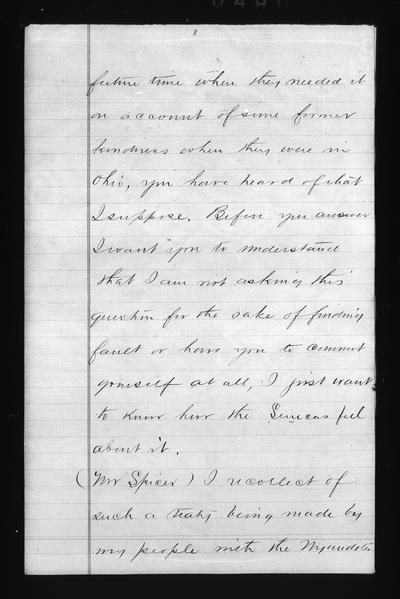 8
future time when they needed it
on account of some former
kindness when they were in
Ohio, you have heard of that
I suppose. Before you answer
I want you to understand
that I am not asking this
question for the sake of finding
fault or have you to commit
yourself at all, I just want
to know how the Senecas feel
about it.
(Mr Spicer) I recollect of
such a treaty being made by
my people with the Wyandotts